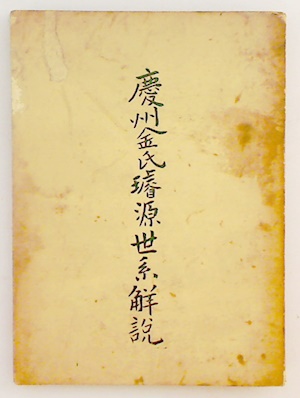 慶州金氏璿源世系解說